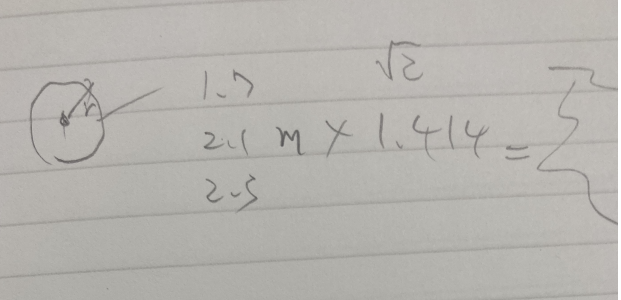 r
1.7 √2
2.1 m × 1.414 = {
2.5